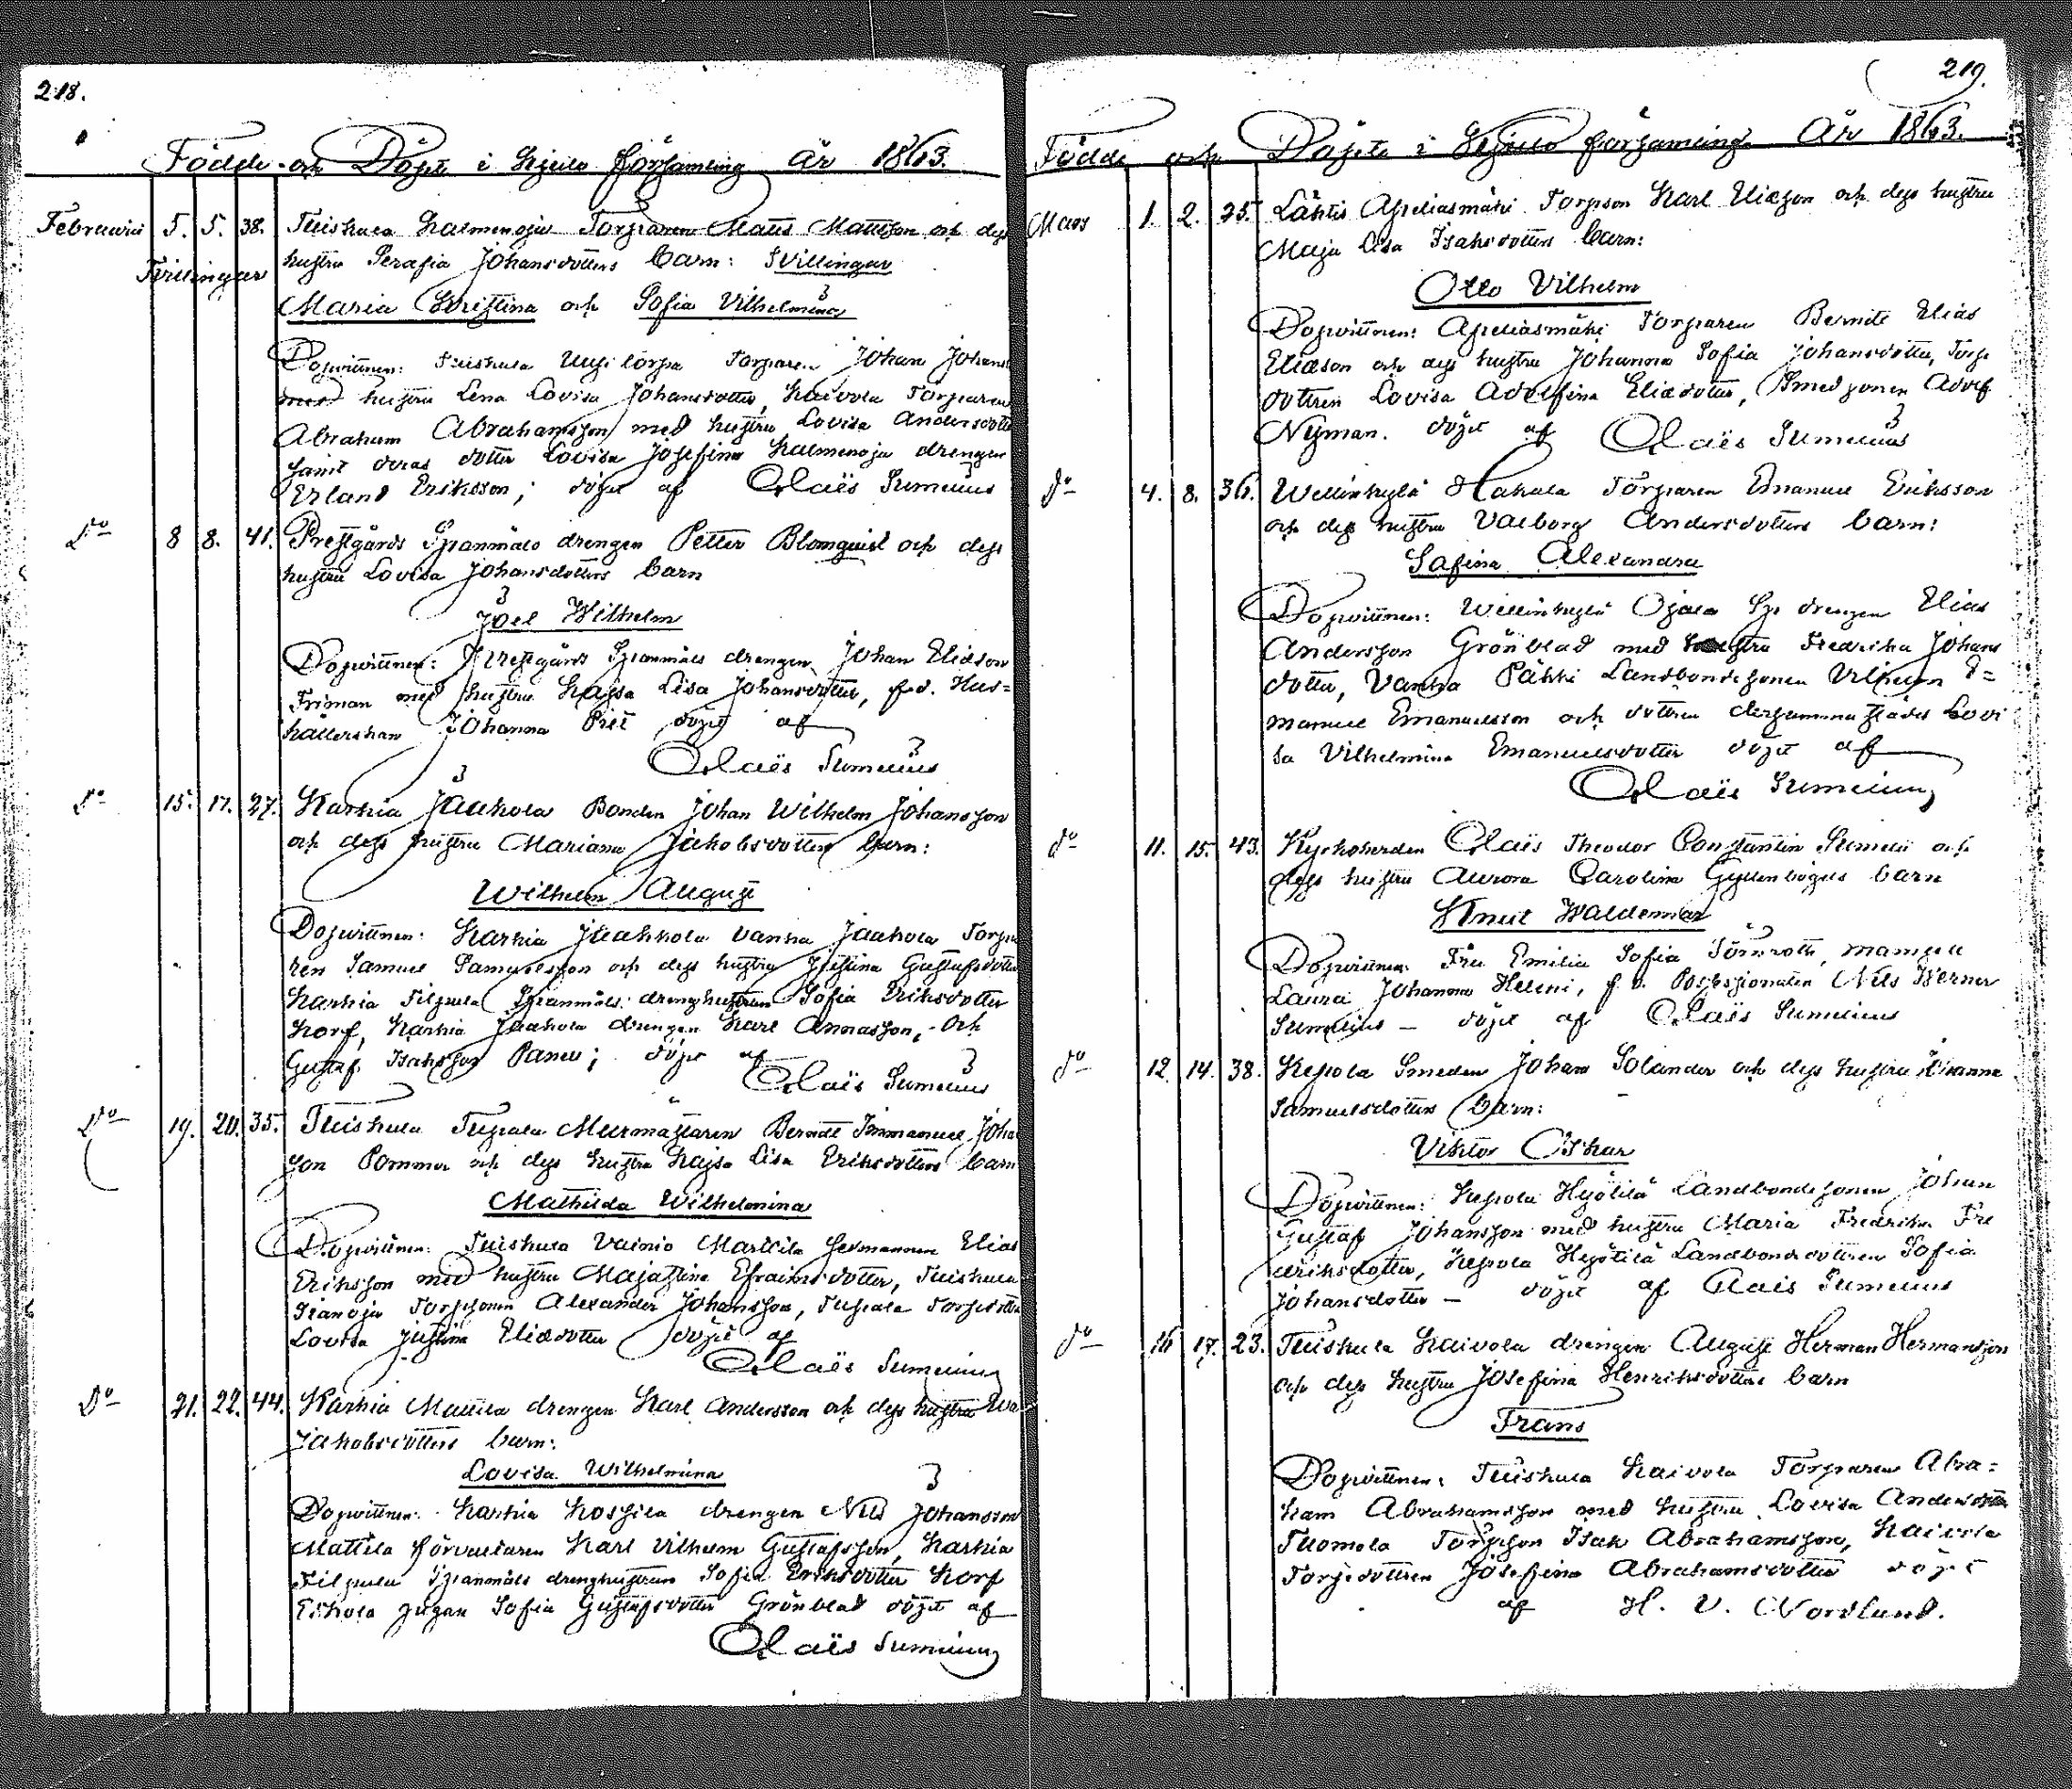 218.
Födde och Döpte i Kjulo församling År 1863.
Februarii 5. 5. 38. Tuiskula Kalmenoja Torparen Matts Mattsson och dess
Tvillingar hustru Serafia Johansdotters barn: Tvillingar
Maria Kristina och Sofia Vilhelmina
Dopvittnen: Tuiskula Uusi torpa Torparen Johan Johans
med hustru Lena Lovisa Johansdotter, Kaivola Torparen
Abraham Abrahamsson med hustru Lovisa Andersdotter
samt deras dotter Lovisa Josefina Kalmenoja drengen
Erland Eriksson; döpt af Claës Sumelius
Do 8 8. 41. Prestgårds Spanmåls drengen Petter Blomquist och dess
hustru Lovisa Johansdotters barn
Joel Wilhelm
Dopvittnen: Prestgårds Spanmåls drengen Johan Eliasson
Friman med hustru Kajsa Lisa Johansdotter, f.d. Hus=
hållerskan Johanna Piet döpt af
Claës Sumelius
Do 15. 17. 27. Karhia Jaakola Bonden Johan Wilhelm Johansson
och dess hustru Mariana Jakobsdotters barn:
Wilhelm August
Dopvittnen: Karhia Jaakkola Vanha Jaakola Torpa
ren Samuel Samuelsson och dess hustru Justina Gustafsdotter
Karhia Filpula Spanmåls drenghustrun Sofia Eriksdotter
Korf, Karhia Jaakola drengen Karl Annasson, och
Gustaf Isaksson Paneu; döpt af
Claës Sumelius
Do 19. 20. 35. Tuiskula Tupala Murmästaren Berndt Immanuel Joha
son Pommer och dess hustru Kajsa Lisa Eriksdotters barn
Mathilda Wilhelmina
Dopvittnen: Tuiskula Vainio Marttila hemmannen Elias
Eriksson med hustru Maja Stina Efraimsdotter, Tuiskula
Pianoja Torpsonen Alexander Johansson, Tupala Torpdotter
Lovisa Justina Eliedotter döpt af
Claës Sumelius
Do 21. 22. 44. Karhia Mattila drengen Karl Andersson och dess hustru Wa
Jakobsdotters barn:
Lovisa Wilhelmina
Dopvittnen: Karhia Kossila drengen Nils Johansson
Mattila förvaltaren Karl Vilhelm Gustafsson, Karhia
Filpula Spanmåls drenghustrun Sofia Eriksdotter Korf
Eskola pigan Sofia Gustafsdotter Grönblad döpt af
Claës Sumelius
219.
Födde och Döpte i Kjulo församling År 1863.
Mars 1. 2. 25. Lähtis Apeliasmäki Torpson Karl Eliasson och dess hustru
Maja Lisa Isaksdotters barn:
Otto Vilhelm
Dopvittnen: Apeliasmäki Torparen Berndt Elias
Eliæson och dess hustru Johanna Sofia Johansdotter, Torp
dottren Lovisa Adolfina Eliædotter, Smedsonen Adolf
Nyman. döpt af Claës Sumelius
do 4. 8. 36. Wellinkylä Hakala Torparen Emanuel Eriksson
och dess hustru Valborg Andersdotters barn:
Safina Alexandra
Dopvittnen: Willinkylä Ojala Sp. drengen Elias
Andersson Grönblad med hustru Fredrika Johans
dotter, Vanha Pähki Landbondesonen Vilhelm E=
manuel Emanuelsson och dottren dersammastädes Lovi
sa Vilhelmina Emanuelsdotter döpt af
Claës Sumelius
do 11. 15. 43. Kyrkoherden Claës Theodor Constantin Sumelii och
dess hustru Aurora Carolina Gyllenbögels barn
Knut Waldemar
Dopvittnen: Fru Emilia Sofia Törnroth, mamsell
Laura Johanna Heleni, f.d. Possessionaten Nils Werner
Sumelius – döpt af Claës Sumelius
do 12. 14. 38. Kepola Smeden Johan Solander och dess hustru Vivanna
Samuelsdotters barn:
Viktor Oskar
Dopvittnen: Kepola Hyötilä Landbondesonen Johan
Gustaf Johansson med hustru Maria Fredrika Fre
driksdotter, Kepola Hyötilä Landbondedottren Sofia
Johansdotter – döpt af Claës Sumelius
do 16 17. 23. Tuiskula Kaivola drengen August Herman Hermansson
och dess hustru Josefina Henriksdotters barn
Frans
Dopvittnen: Tuiskula Kaivola Torparen Abra=
ham Abrahamsson med hustru Lovisa Andersdotter
Tuomola Torpson Isak Abrahamsson, Kaivola
Torpdottren Josefina Abrahamsdotter döpt
af H. V. Nordlund.